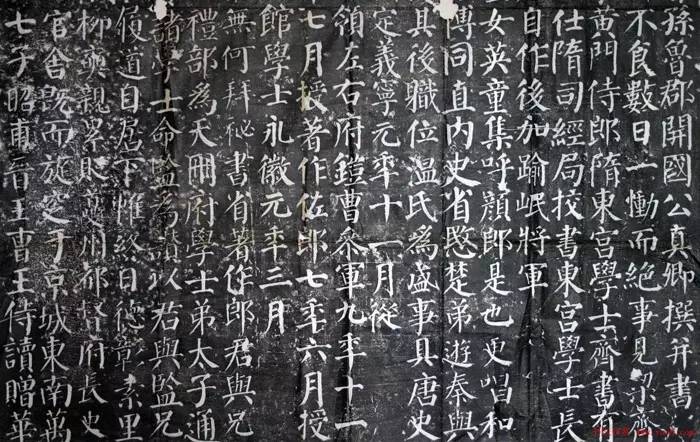 孫魯郡開國公真卿撰并書
不食數日一慟而絕事見梁齊
黃門侍郎隋東宮學士齊書有
仕隋司經局校書東宮學士長
自作後加踰岷將軍
女英童集呼顏郎是也更唱和
博同直內史省愍楚弟遊秦與
其後職位溫氏為盛事具唐史
定義寧元年十一月從
領左右府鎧曹參軍九年十一
七月授著作佐郎七年六月授
館學士永徽元年三月
無何拜祕書省著作郎君與兄
禮部為天冊府學士弟太子通
諸學士命監為讚以君與監兄
道自居下帷終日德彰素里
柳奭親累貶夔州都督府長史
官舍既而旋窆于京城東南萬
七子昭甫晉王曹王侍讀贈華